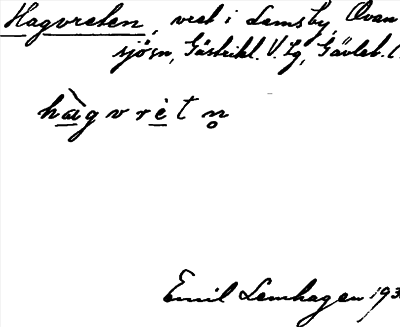 Hagvreten, vret i Lemsby, Ovan
sjösn, Gästrikl. V. Lg, Gävleb. l.
hàgvrètn̥
Emil Lemhagen 193